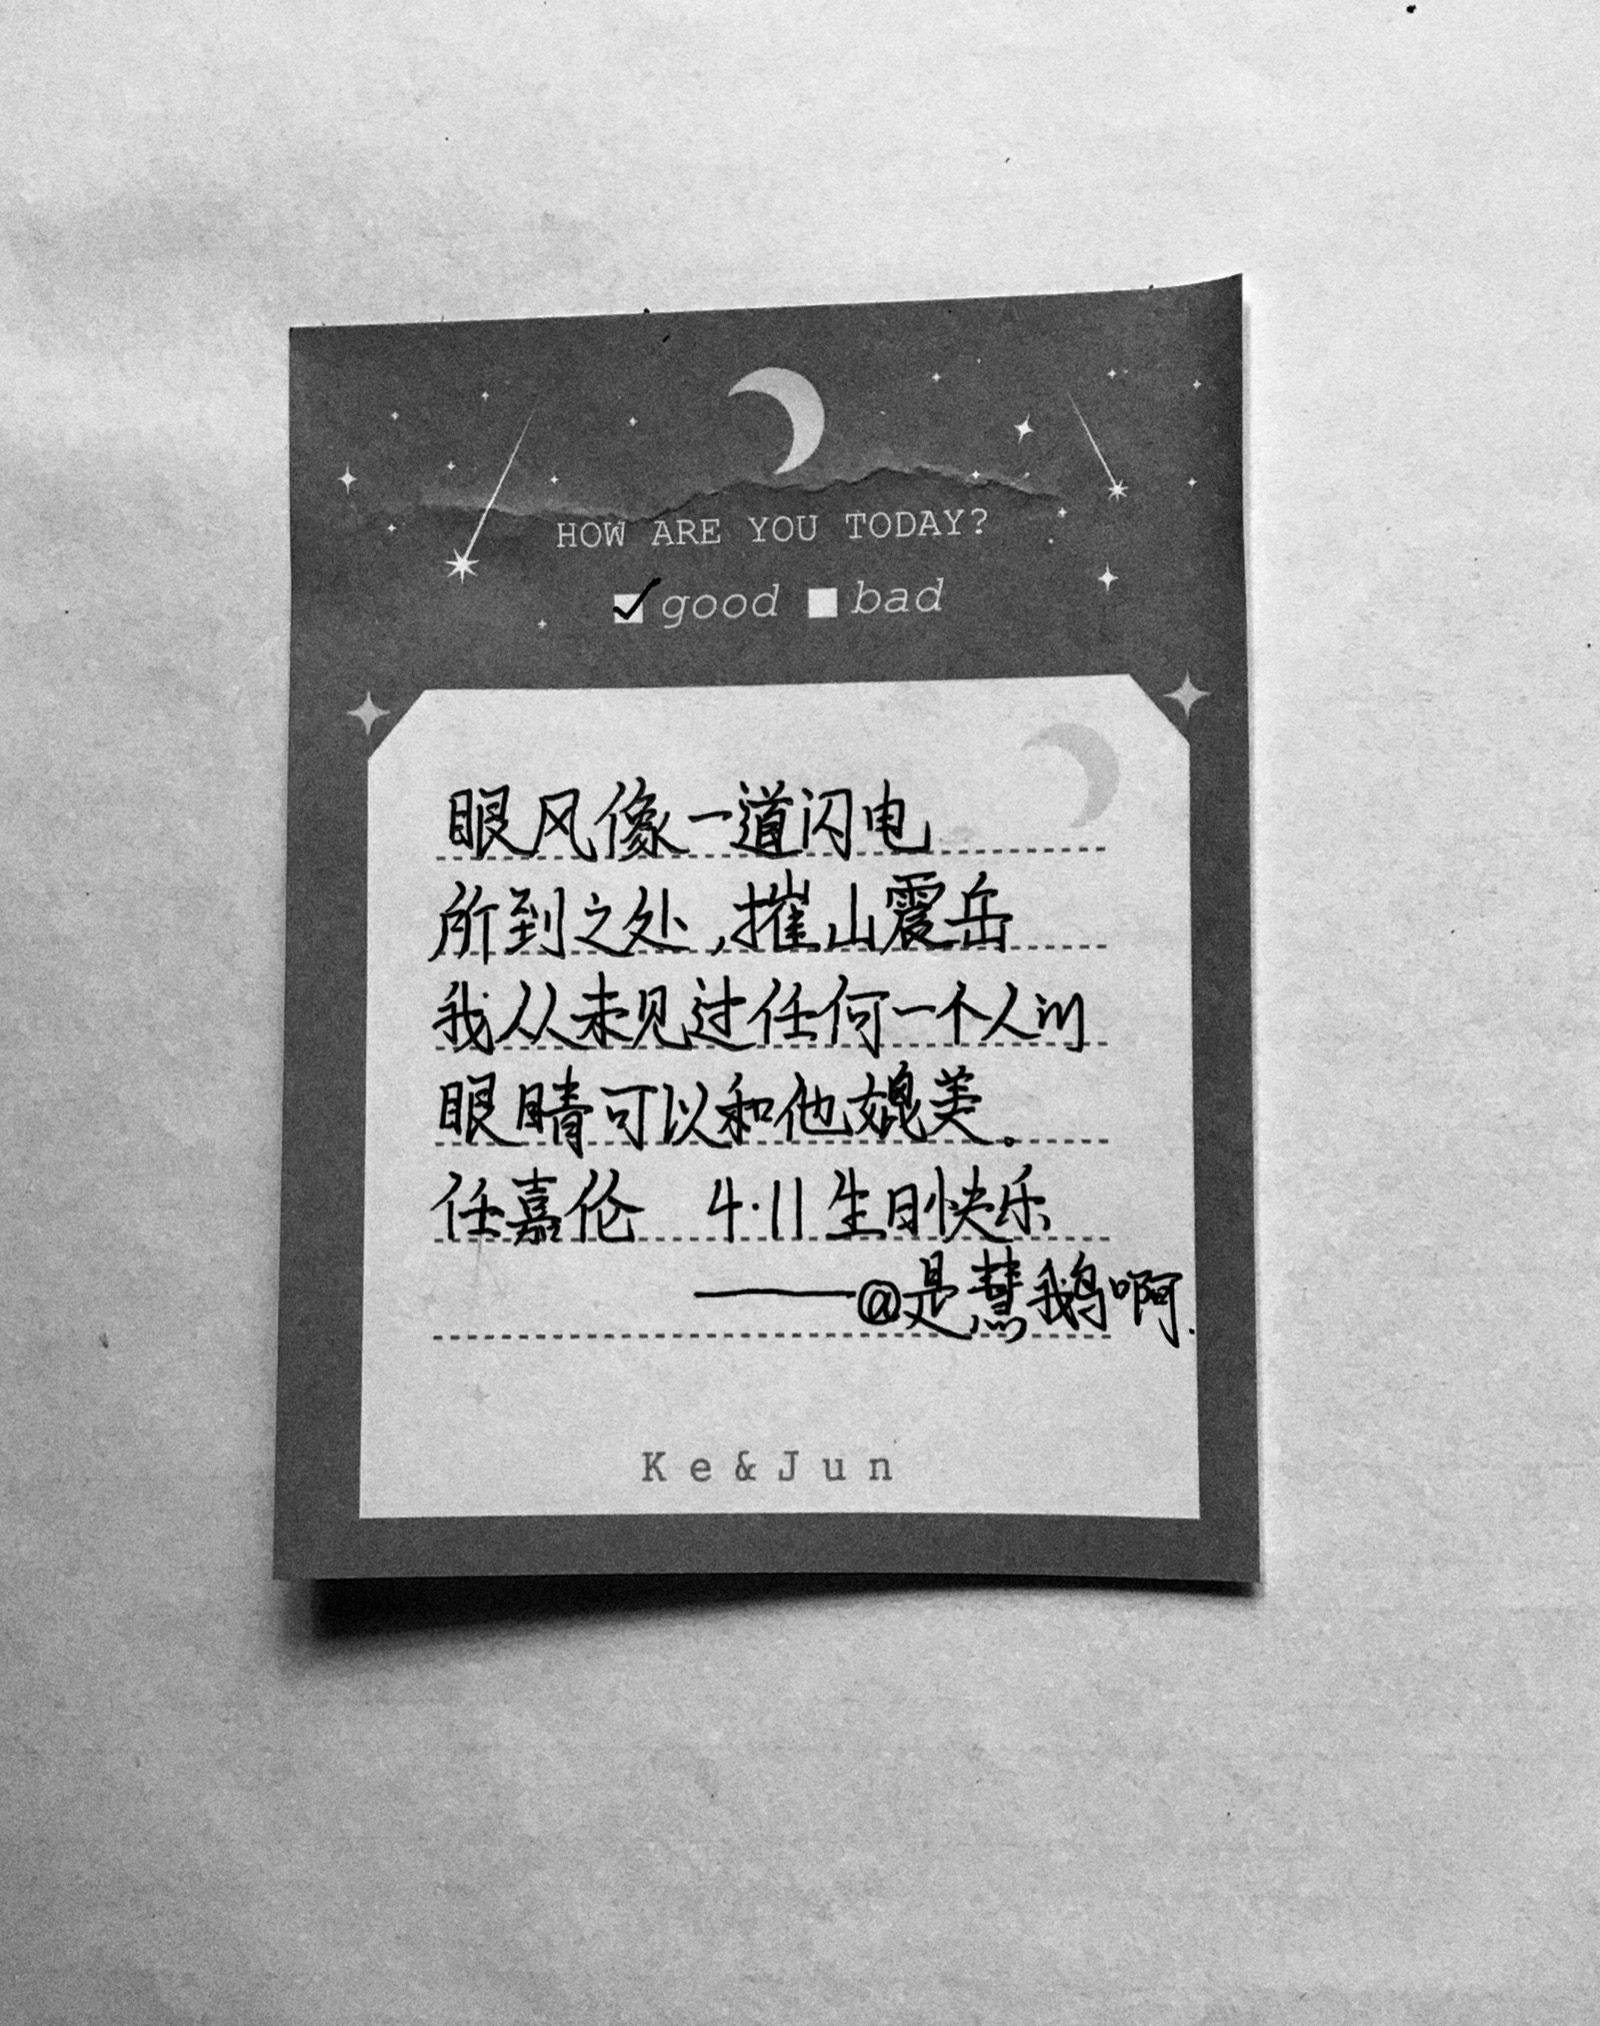 HOW ARE YOU TODAY?
good bad
眼风像一道闪电
所到之处,摧山震岳
我从未见过任何一个人的
眼睛可以和他媲美。
任嘉伦 4·11生日快乐
——@是慧鹅啊.
Ke&Jun